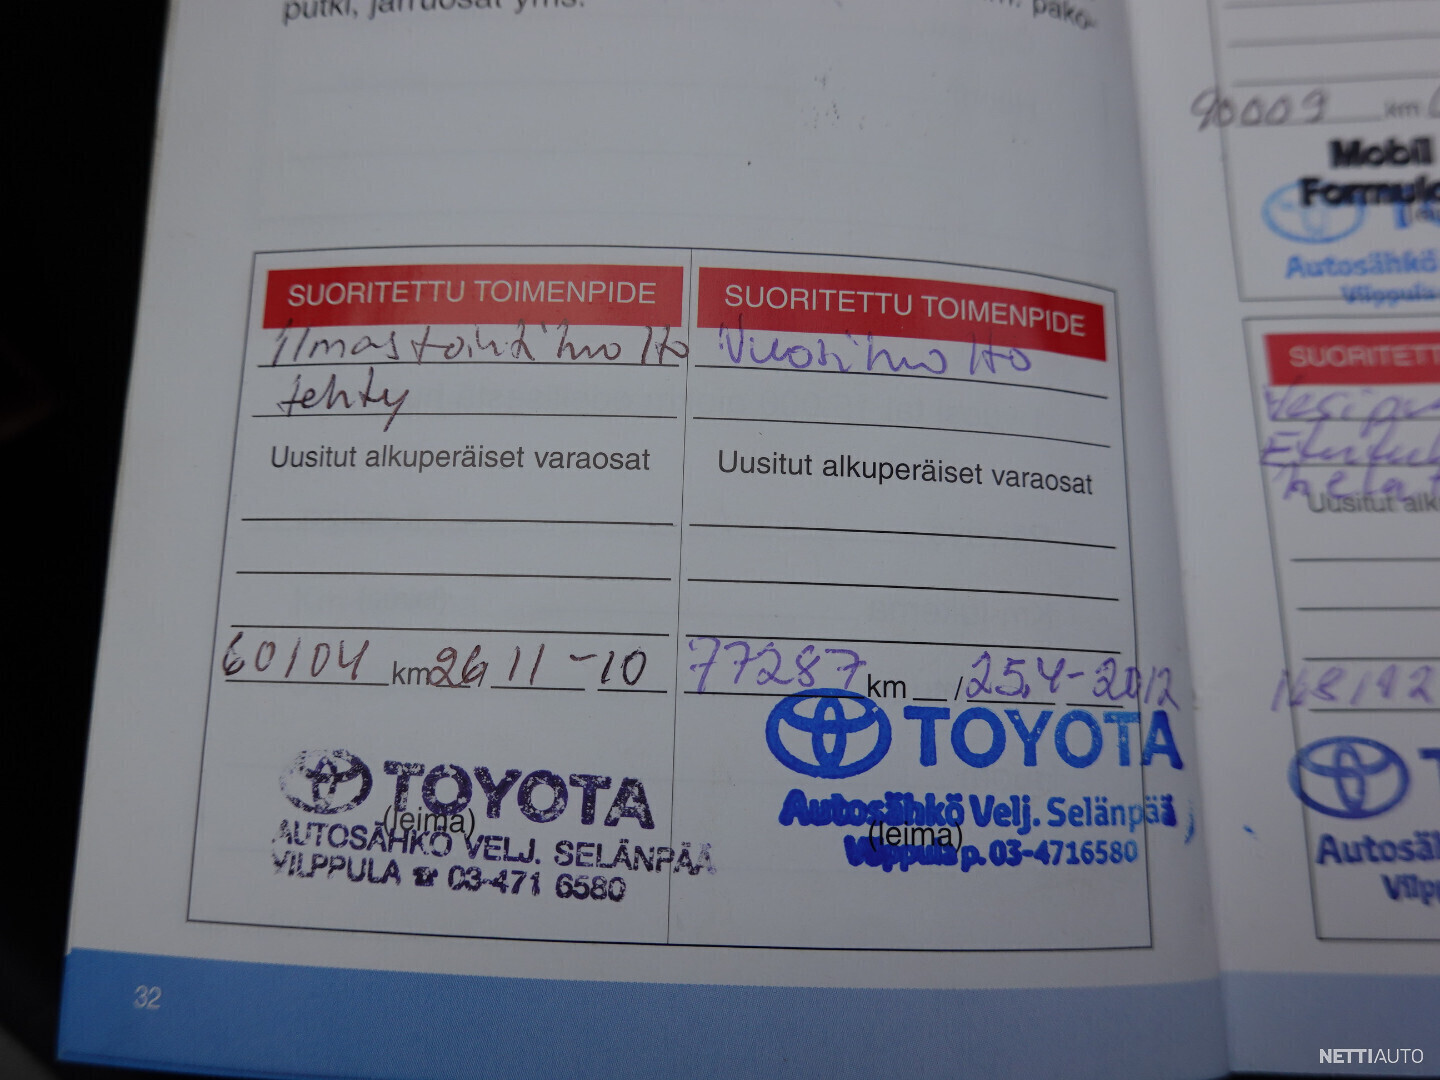 putki, jarruosat yms.
pako-
SUORITETTU TOIMENPIDE
Ilmastointihuolto
tehty
Uusitut alkuperäiset varaosat
60104 km 26 / 11 - 10
TOYOTA
(leima)
AUTOSÄHKÖ VELJ. SELÄNPÄÄ
VILPPULA ☎ 03-471 6580
SUORITETTU TOIMENPIDE
Vuosihuolto
Uusitut alkuperäiset varaosat
77287 km / 25.4-2012
TOYOTA
Autosähkö Velj. Selänpää
(leima)
Vilppula p. 03-4716580
32
90009 km
Mobil
Formula
Autosähkö
Vilppula
SUORITETT
Uusitut alk
168192
Autosäh
Vilpp
NETTIAUTO